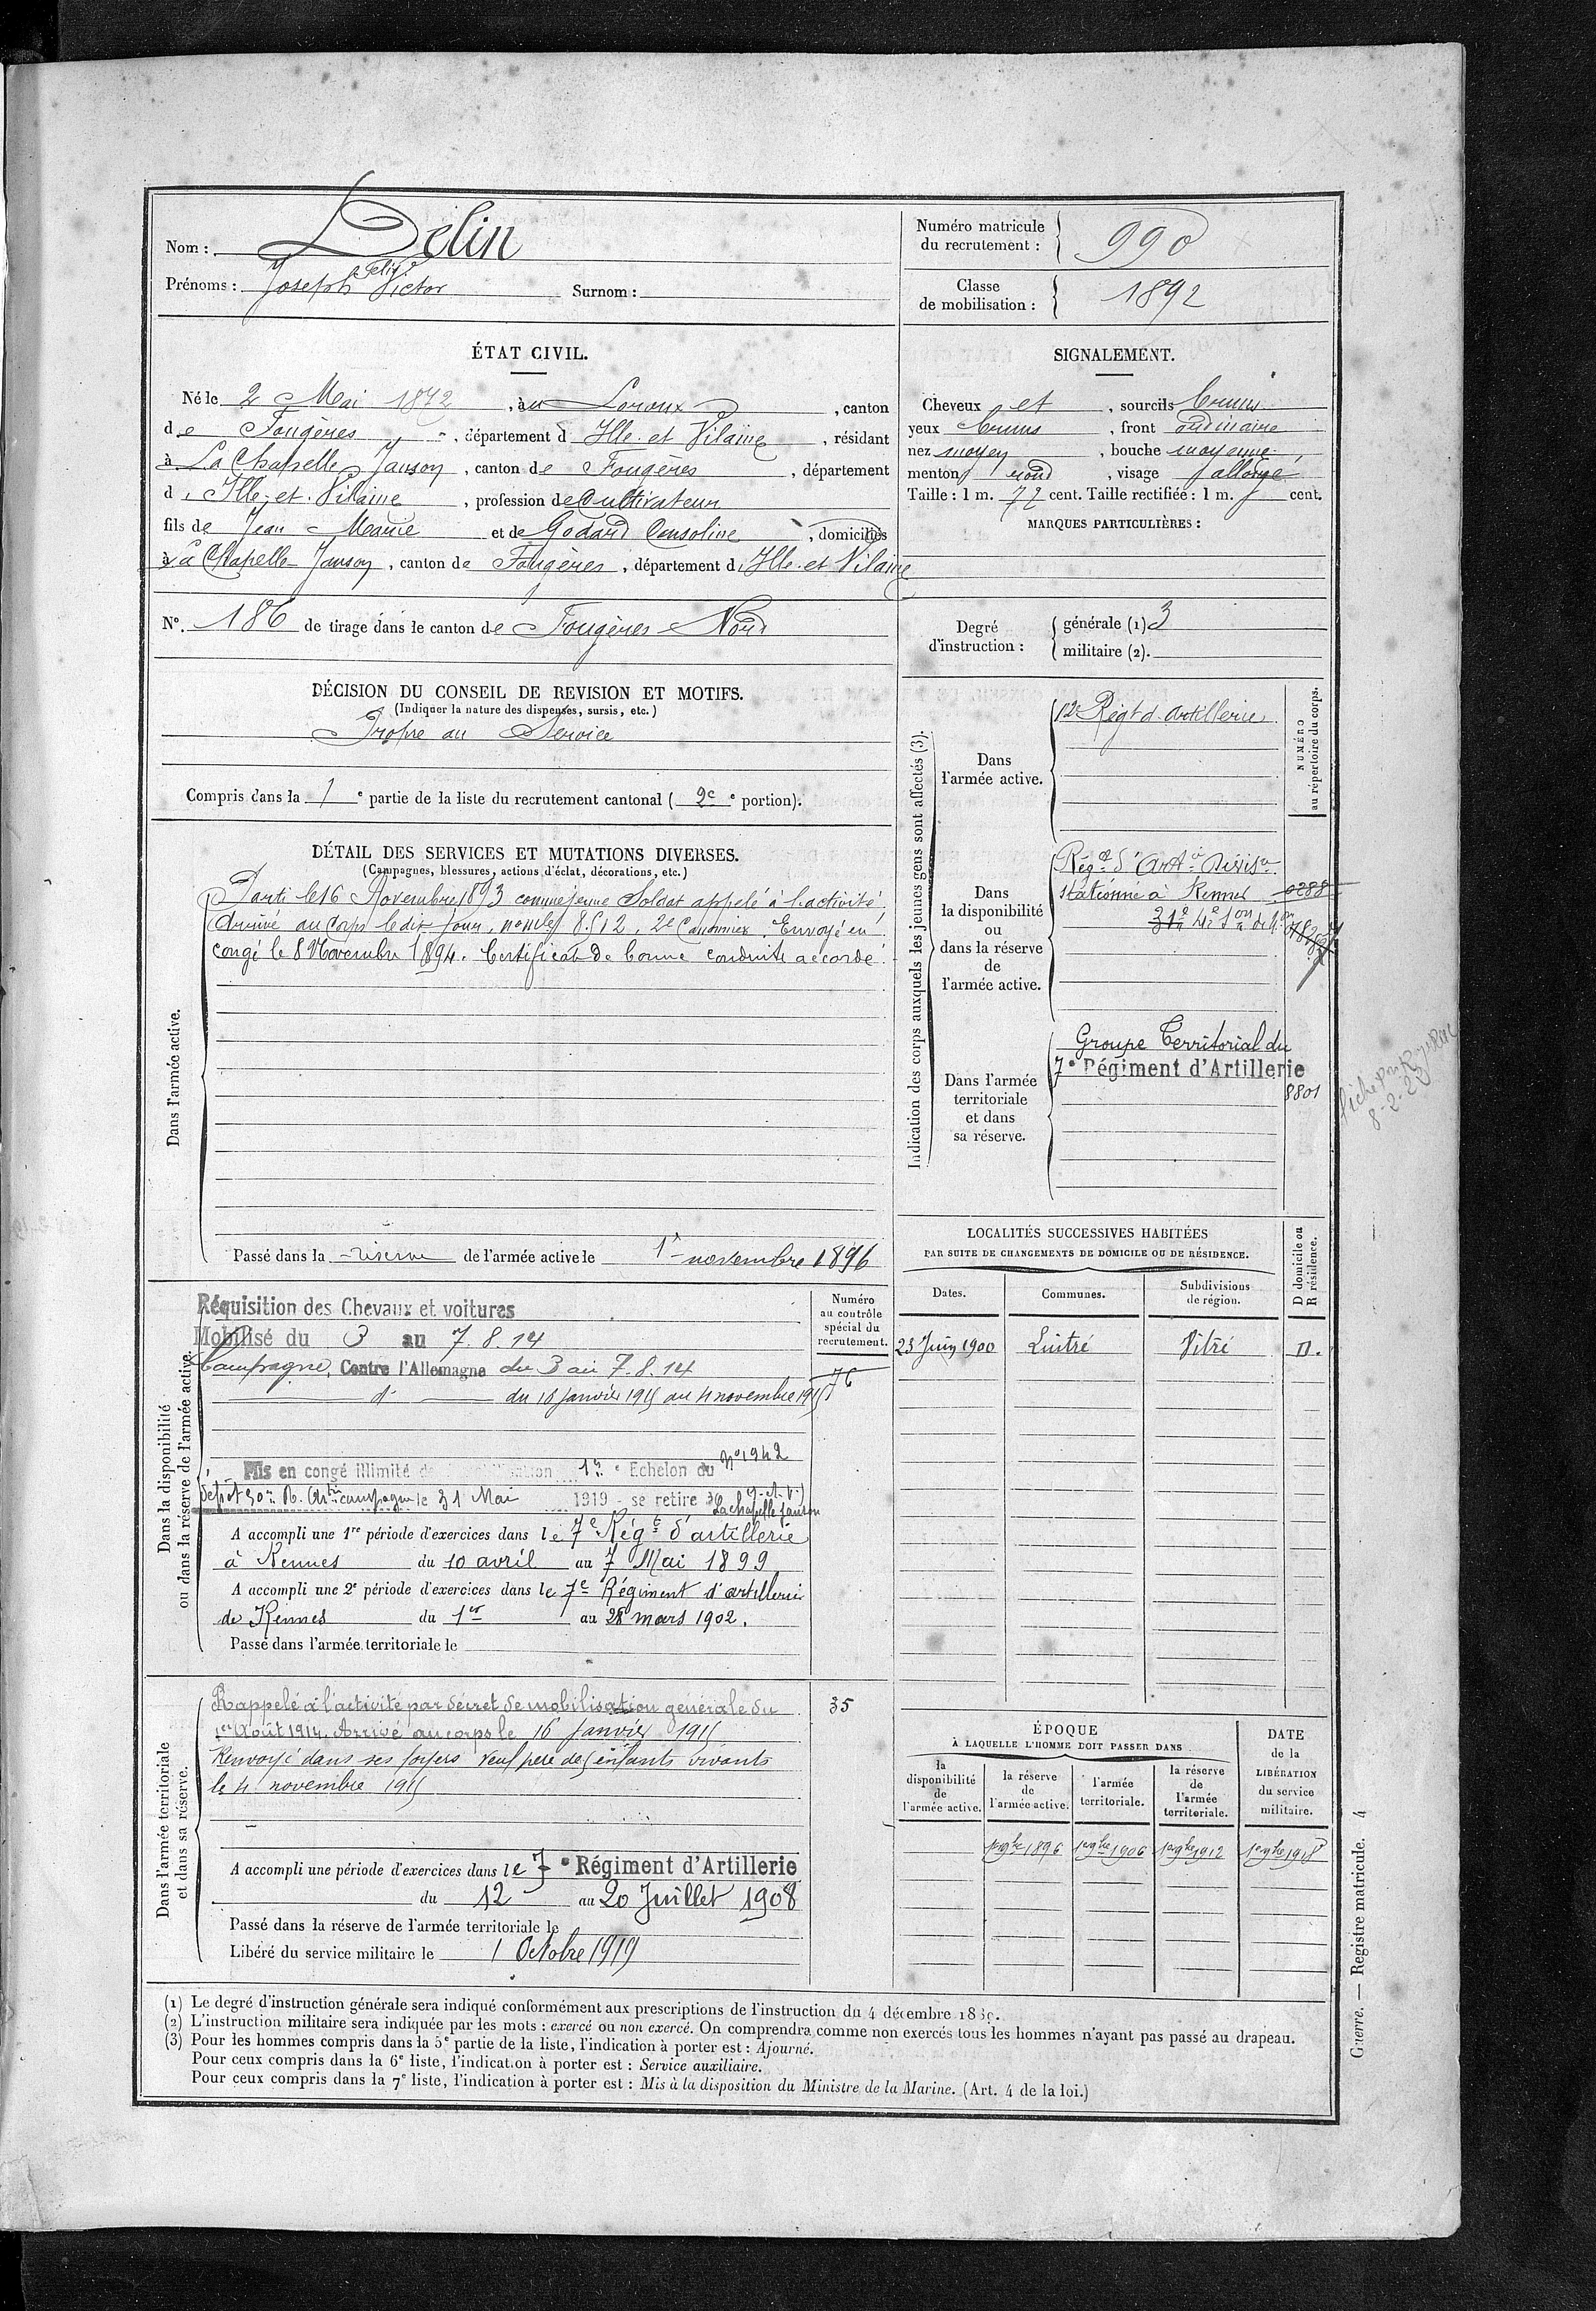 Nom : Delin
Prénoms : Joseph Felix Victor Surnom :
Numéro matricule
du recrutement : 990
Classe
de mobilisation : 1892
ÉTAT CIVIL.
Né le 2 Mai 1872, à au Loroux, canton
de Fougères, département d'Ille et Vilaine, résidant
à La Chapelle Janson, canton de Fougères, département
d'Ille et Vilaine, profession de Cultivateur
fils de Jean Marie et de Godard Consoline, domiciliés
à La Chapelle Janson, canton de Fougères, département d'Ille et Vilaine
N°. 186 de tirage dans le canton de Fougères Nord
SIGNALEMENT.
Cheveux et, sourcils bruns
yeux bruns, front ordinaire
nez moyen, bouche moyenne
menton rond, visage allongé
Taille : 1 m. 72 cent. Taille rectifiée : 1 m. cent.
MARQUES PARTICULIÈRES :
Degré
d'instruction :
générale (1) 3
militaire (2).
DÉCISION DU CONSEIL DE REVISION ET MOTIFS.
(Indiquer la nature des dispenses, sursis, etc.)
Propre au Service
Compris dans la 1e partie de la liste du recrutement cantonal (2e e portion).
DÉTAIL DES SERVICES ET MUTATIONS DIVERSES.
(Campagnes, blessures, actions d'éclat, décorations, etc.)
Dans l'armée active.
Parti le 16 Novembre 1893 comme jeune Soldat appelé à l'activité
Arrivé au Corps le dit jour, n° mle 8512, 2e Canonnier. Envoyé en
congé le 8 Novembre 1894. Certificat de bonne conduite accordé.
Passé dans la réserve de l'armée active le 1r novembre 1896
Indication des corps auxquels les jeunes gens sont affectés (3).
NUMÉRO
au répertoire du corps.
Dans
l'armée active.
Régt d'artillerie
Dans
la disponibilité
ou
dans la réserve
de
l'armée active.
stationné à Rennes 0288
Dans l'armée
territoriale
et dans
sa réserve.
Groupe Territorial du
7e Régiment d'Artillerie
8801
8-2-23
LOCALITÉS SUCCESSIVES HABITÉES
PAR SUITE DE CHANGEMENTS DE DOMICILE OU DE RÉSIDENCE.
Dates. Communes. Subdivisions
de région.
D domicile ou
R résidence.
23 Juin 1900 Luitré Vitré D.
Dans la disponibilité
ou dans la réserve de l'armée active.
Numéro
au contrôle
spécial du
recrutement.
76
Réquisition des Chevaux et voitures
Mobilisé du 3 au 7.8.14
Campagne Contre l'Allemagne du 3 au 7.8.14
d° du 16 janvier 1915 au 4 novembre 1915
Mis en congé illimité de démobilisation 1r e Echelon du N° 1942
Dépôt 50e R. Artie campagne le 31 Mai 1919 - se retire à La Chapelle Janson (I-et-V)
A accompli une 1re période d'exercices dans le 7e Régt d'artillerie
à Rennes du 10 avril au 7 Mai 1899
A accompli une 2e période d'exercices dans le 7e Régiment d'artillerie
de Rennes du 1er au 28 mars 1902.
Passé dans l'armée territoriale le
Dans l'armée territoriale
et dans sa réserve.
35
Rappelé à l'activité par décret de mobilisation générale du
1er Août 1914. Arrivé au corps le 16 Janvier 1915
Renvoyé dans ses foyers veuf père de 5 enfants vivants
le 4 novembre 1915
A accompli une période d'exercices dans le 7e Régiment d'Artillerie
du 12 au 20 Juillet 1908
Passé dans la réserve de l'armée territoriale le
Libéré du service militaire le 1 Octobre 1919
ÉPOQUE
À LAQUELLE L'HOMME DOIT PASSER DANS
la
disponibilité
de
l'armée active.
la réserve
de
l'armée active.
l'armée
territoriale.
la réserve
de
l'armée
territoriale.
DATE
de la
LIBÉRATION
du service
militaire.
1er 9bre 1896 1er 9bre 1906 1er 9bre 1912 1er 9bre 1918
(1) Le degré d'instruction générale sera indiqué conformément aux prescriptions de l'instruction du 4 décembre 1889.
(2) L'instruction militaire sera indiquée par les mots : exercé ou non exercé. On comprendra comme non exercés tous les hommes n'ayant pas passé au drapeau.
(3) Pour les hommes compris dans la 5e partie de la liste, l'indication à porter est : Ajourné.
Pour ceux compris dans la 6e liste, l'indication à porter est : Service auxiliaire.
Pour ceux compris dans la 7e liste, l'indication à porter est : Mis à la disposition du Ministre de la Marine. (Art. 4 de la loi.)
Guerre. — Registre matricule. 4